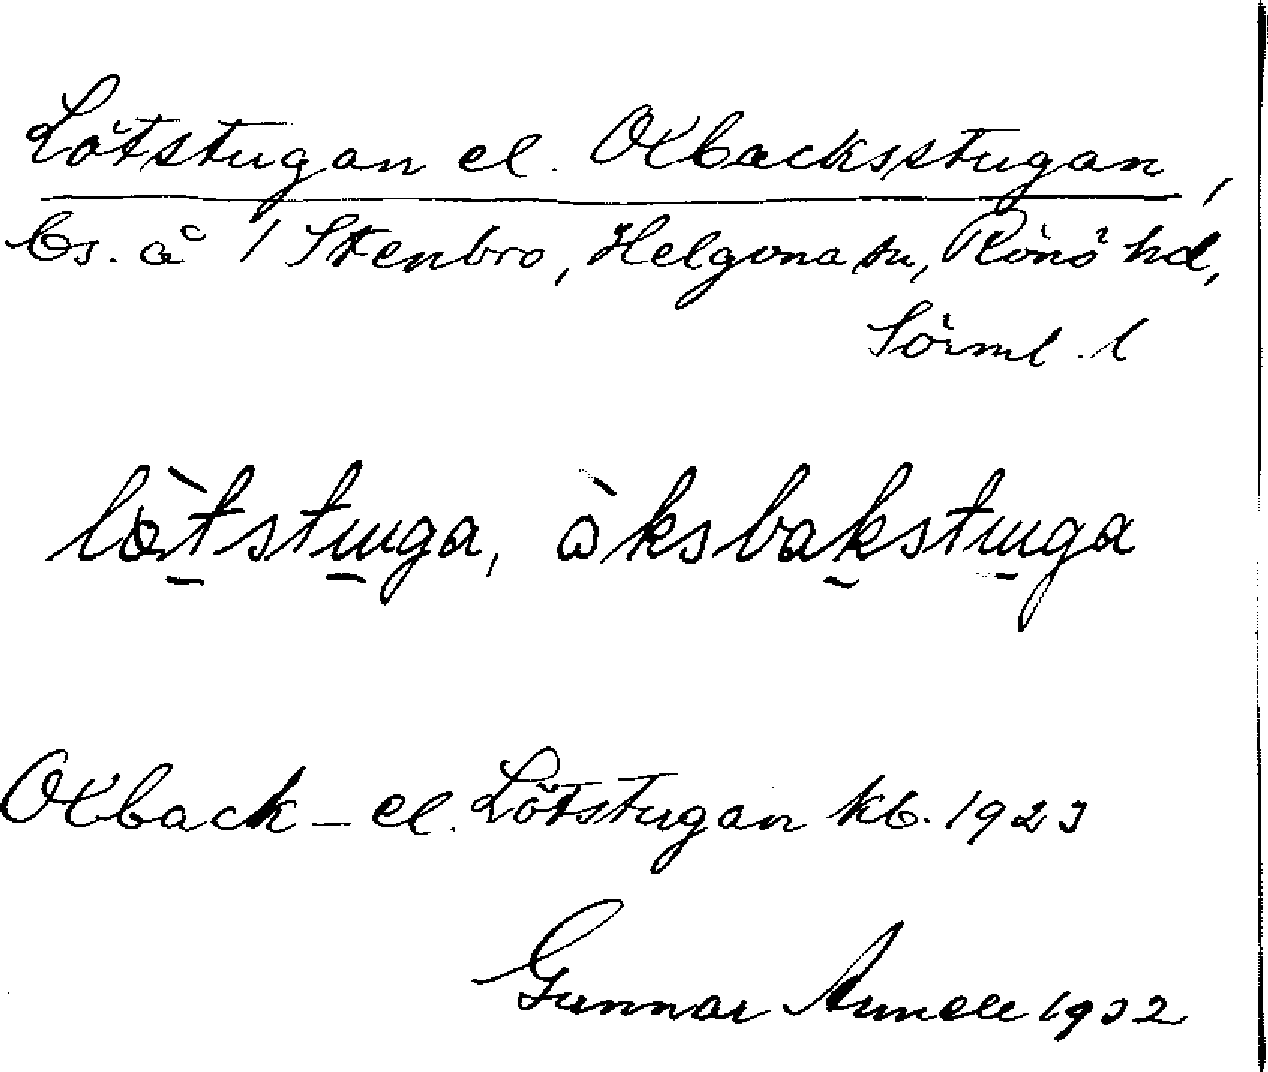 Lötstugan el. Oxbacksstugan,
bs. å 1 Stenbro, Helgona sn, Rönö hd,
Sörml. l
lö̀tstuga, òksbakstuga
Oxback- el. Lötstugan kb. 1923
Gunnar Arnell 1932